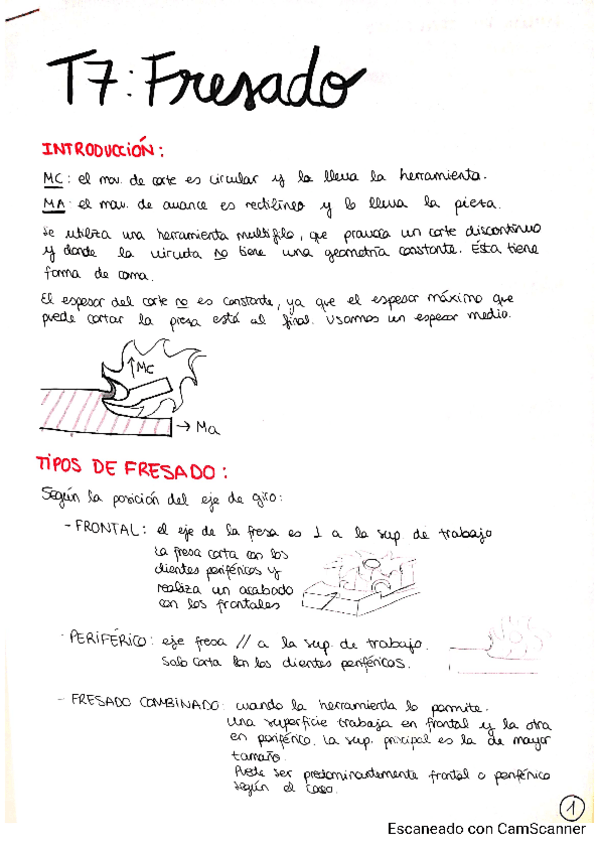 T7: Fresado
INTRODUCCIÓN:
MC: el mov. de corte es circular y la lleva la herramienta.
MA: el mov. de avance es rectilíneo y lo lleva la pieza.
Se utiliza una herramienta multifilo, que provoca un corte discontinuo
y donde la viruta no tiene una geometría constante. Ésta tiene
forma de coma.
El espesor del corte no es constante, ya que el espesor máximo que
puede cortar la fresa está al final. Usamos un espesor medio.
MC
→ Ma
TIPOS DE FRESADO:
Según la posición del eje de giro:
- FRONTAL: el eje de la fresa es ⊥ a la sup. de trabajo
La fresa corta con los
dientes periféricos y
realiza un acabado
con los frontales
- PERIFÉRICO: eje fresa // a la sup. de trabajo.
Solo corta con los dientes periféricos.
- FRESADO COMBINADO: cuando la herramienta lo permite.
Una superficie trabaja en frontal y la otra
en periférico. La sup. principal es la de mayor
tamaño.
Puede ser predominantemente frontal o periférico
según el caso.
1
Escaneado con CamScanner